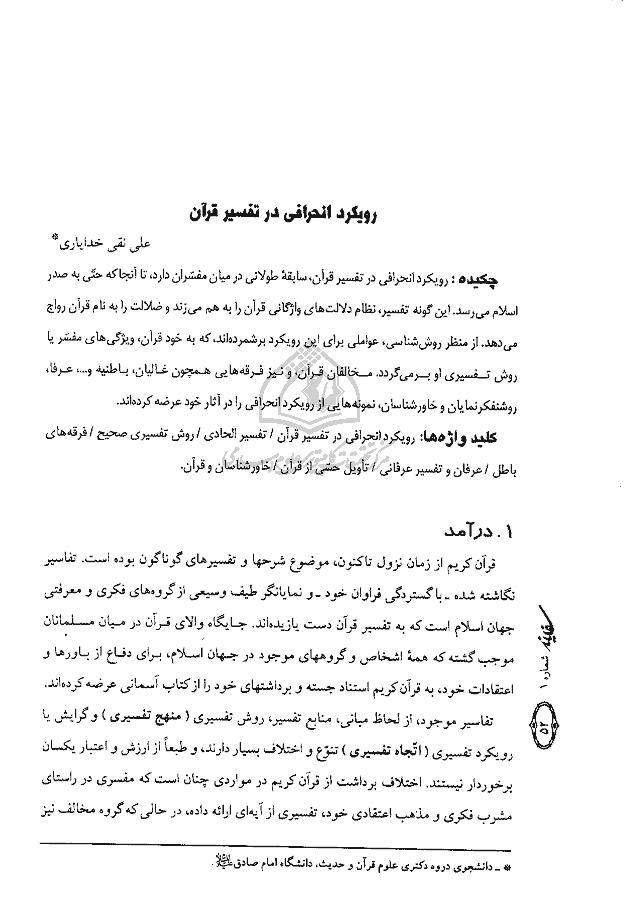 رویکرد انحرافی در تفسیر قرآن
علی نقی خدایاری*
چکیده: رویکرد انحرافی در تفسیر قرآن، سابقهٔ طولانی در میان مفسّران دارد، تا آنجا که حتّی به صدر
اسلام می‌رسد. این گونه تفسیر، نظام دلالت‌های واژگانی قرآن را به هم می‌زند و ضلالت را به نام قرآن رواج
می‌دهد. از منظر روش‌شناسی، عواملی برای این رویکرد برشمرده‌اند، که به خود قرآن، ویژگی‌های مفسّر یا
روش تفسیری او برمی‌گردد. مخالفان قرآن، و نیز فرقه‌هایی همچون غالیان، باطنیه و...، عرفا،
روشنفکرنمایان و خاورشناسان، نمونه‌هایی از رویکرد انحرافی را در آثار خود عرضه کرده‌اند.
کلید واژه‌ها: رویکرد انحرافی در تفسیر قرآن / تفسیر الحادی / روش تفسیری صحیح / فرقه‌های
باطل / عرفان و تفسیر عرفانی / تأویل حسّی از قرآن / خاورشناسان و قرآن.
۱. درآمد
قرآن کریم از زمان نزول تاکنون، موضوع شرحها و تفسیرهای گوناگون بوده است. تفاسیر
نگاشته شده ـ با گستردگی فراوان خود ـ و نمایانگر طیف وسیعی از گروه‌های فکری و معرفتی
جهان اسلام است که به تفسیر قرآن دست یازیده‌اند. جایگاه والای قرآن در میان مسلمانان
موجب گشته که همهٔ اشخاص و گروههای موجود در جهان اسلام، برای دفاع از باورها و
اعتقادات خود، به قرآن کریم استناد جسته و برداشتهای خود را از کتاب آسمانی عرضه کرده‌اند.
تفاسیر موجود، از لحاظ مبانی، منابع تفسیر، روش تفسیری (منهج تفسیری) و گرایش یا
رویکرد تفسیری (اتّجاه تفسیری) تنوّع و اختلاف بسیار دارند، و طبعاً از ارزش و اعتبار یکسان
برخوردار نیستند. اختلاف برداشت از قرآن کریم در مواردی چنان است که مفسری در راستای
مشرب فکری و مذهب اعتقادی خود، تفسیری از آیه‌ای ارائه داده، در حالی که گروه مخالف نیز
* ـ دانشجوی دروه دکتری علوم قرآن و حدیث، دانشگاه امام صادق
سفینه شماره ۱
۵۲